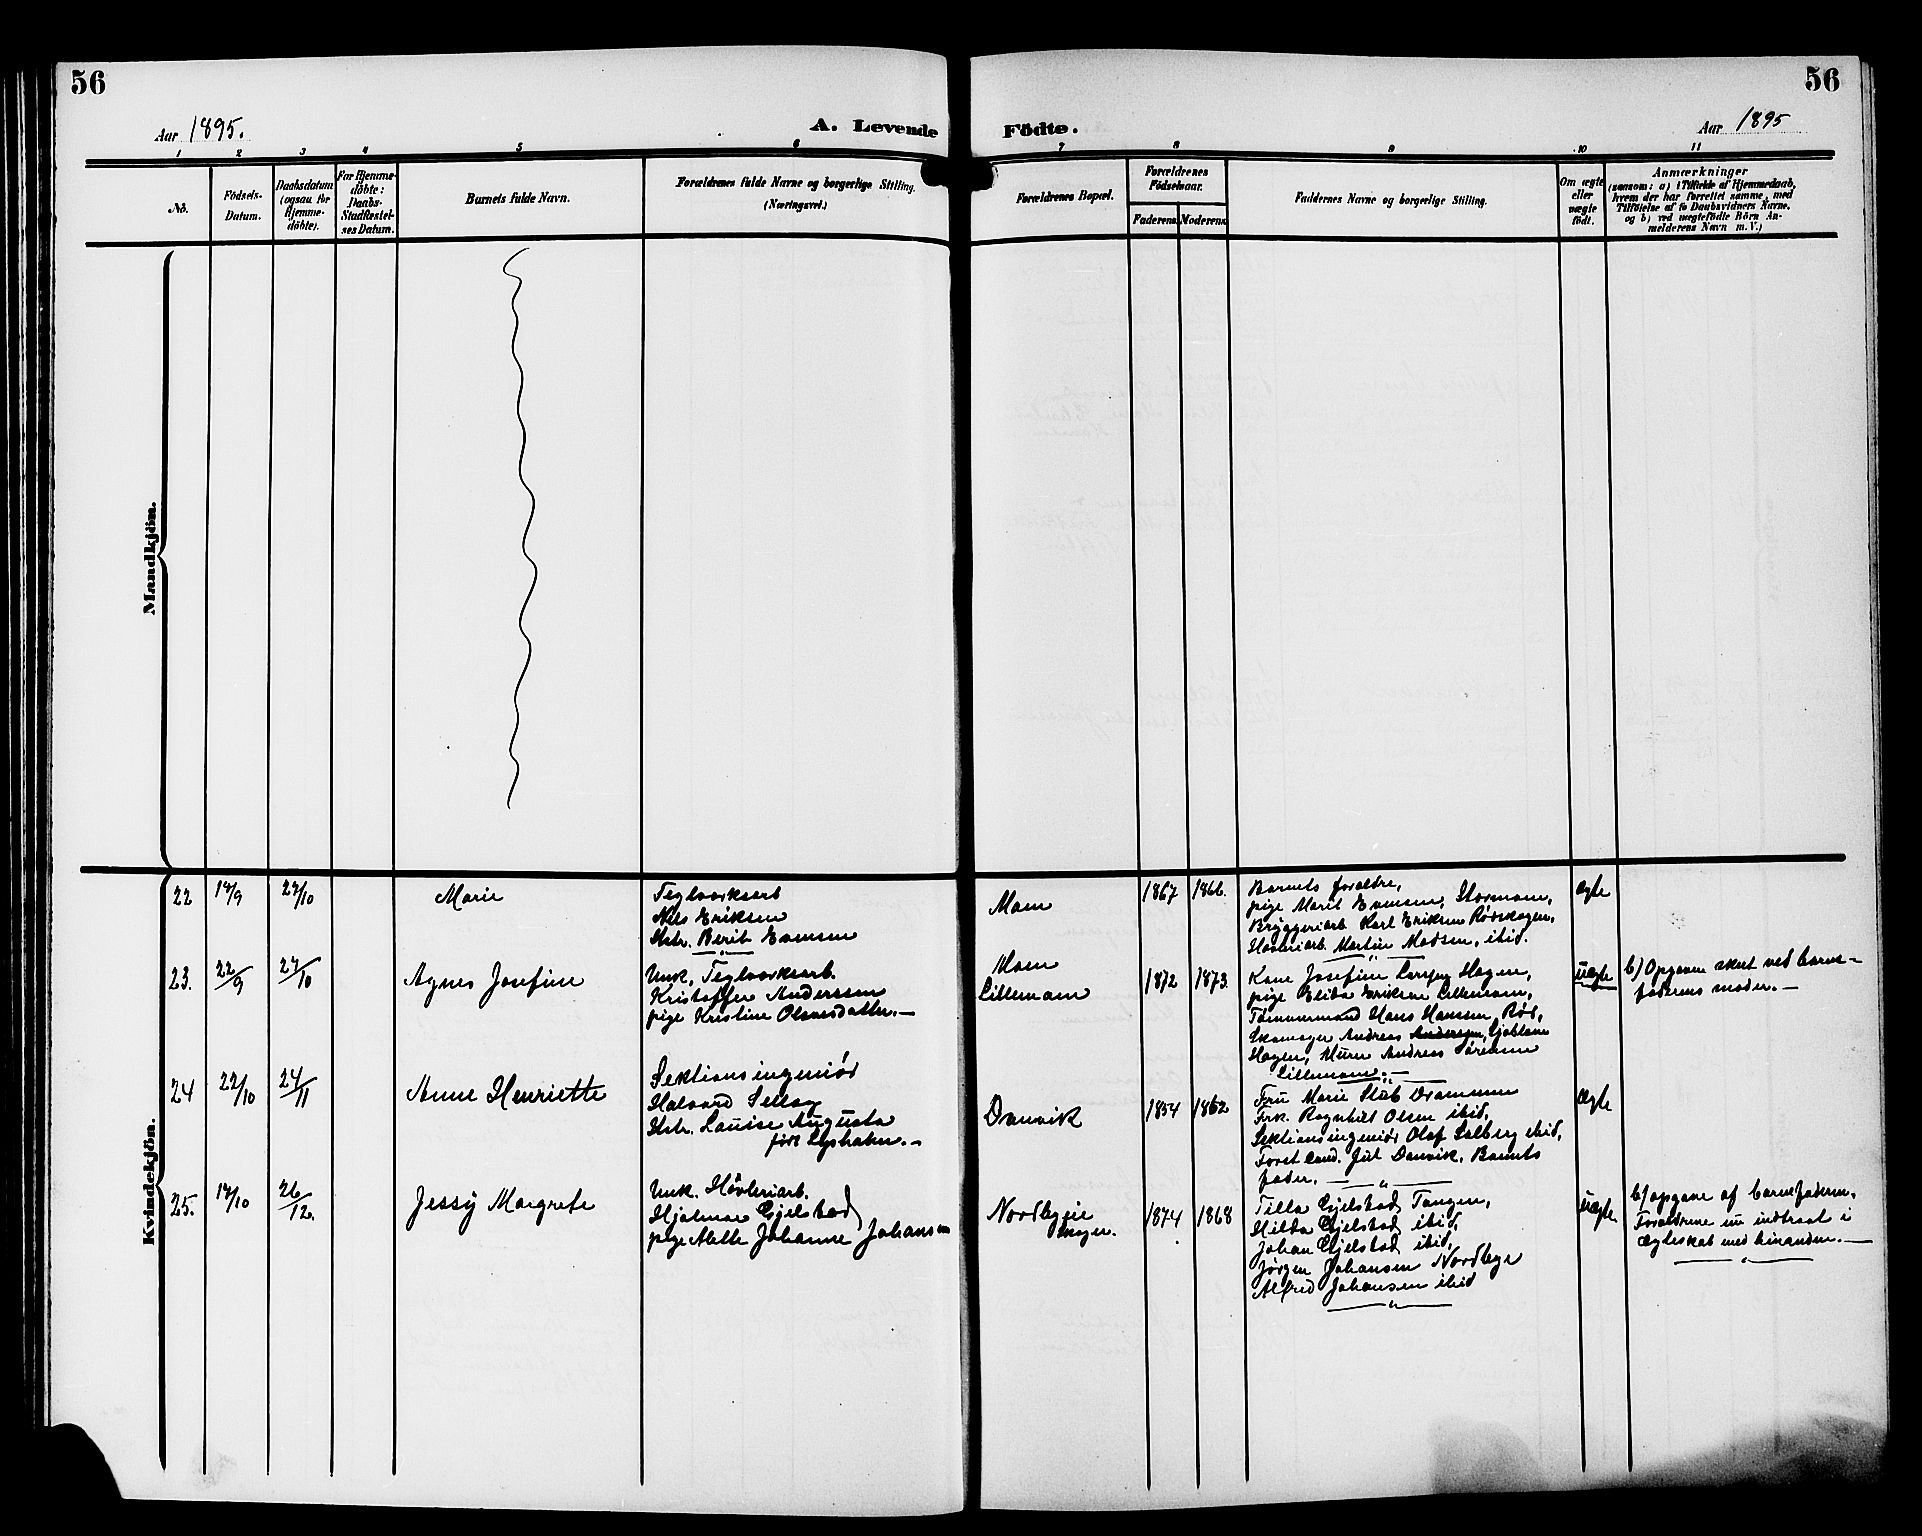 56
56
Aar 1895.
A. Levende
Födte.
Aar 1895
1 2 3 4 5 6 7 8 9 10 11
No.
Födsels-
Datum.
Daabsdatum
(ogsaa for
Hjemme-
döbte).
For Hjemme-
döbte:
Daabs-
Stadfæstel-
ses Datum.
Barnets fulde Navn.
Forældrenes fulde Navne og borgerlige Stilling.
(Næringsvei.)
Forældrenes Bopæl.
Forældrenes
Födselsaar.
Faderens.
Moderens.
Faddernes Navne og borgerlige Stilling.
Om ægte
eller
uægte
födt.
Anmærkninger
(saasom: a) i Tilfælde af Hjemmedaab,
hvem der har forrettet samme, med
Tilföielse af to Daabsvidners Navne,
og b) ved uægtefödte Börn An-
melderens Navn m. V.)
Mandkjön.
Kvindekjön.
22
14/9
27/10
Marie
Teglværksarb
Nils Eriksen
Hstr. Berit Evensen
Moen
1867
1866.
Barnets forældre,
pige Marit Evensen, Stormoen,
Bryggeriarb Karl Eriksen Rødskogen,
Høvleriarb. Martin Madsen, ibid.
ægte
23.
22/9
27/10
Agnes Josefine
Unk. Teglværksarb.
Kristoffer Anderssen
pige Kristine Olavesdatter.—
Moen
Lillemoen
1872
1873.
Kone Josefine Hagen,
pige Elida Eriksen Lillemoen,
Tømmermand Hans Hanssen, Rød,
Skomager Andreas Anderssen,
Hagen, Murer Andreas
Lillemoen.—
uægte
b) Opgaven skeet ved barne-
faderens moder.—
24
22/10
24/11
Anne Henriette
Sektionsingeniør
Halvard
Hstr. Lauise Augusta
født Lysholm.—
Danvik
1854
1862
Fru Marie Stub Drammen
Frk. Ragnhild Olsen ibid,
Sektionsingeniør Olaf Solberg ibid,
Forst cand. Jul Danvik, Barnets
fader.—
ægte
25.
14/10
26/12.
Jessy Margrete
Unk. Høvleriarb.
Hjalmar Gjelstad
pige Mette Johanne Johansen
Nordbyeie
skogen.
1874
1868
Tilla Gjelstad Tangen,
Hilda Gjelstad ibid,
Johan Gjelstad ibid,
Jørgen Johansen Nordbye
Alfred Johansen ibid
uægte
b) opgave af barnefaderen.
Forældrene nu indtraat i
Ægteskab med hinanden.—